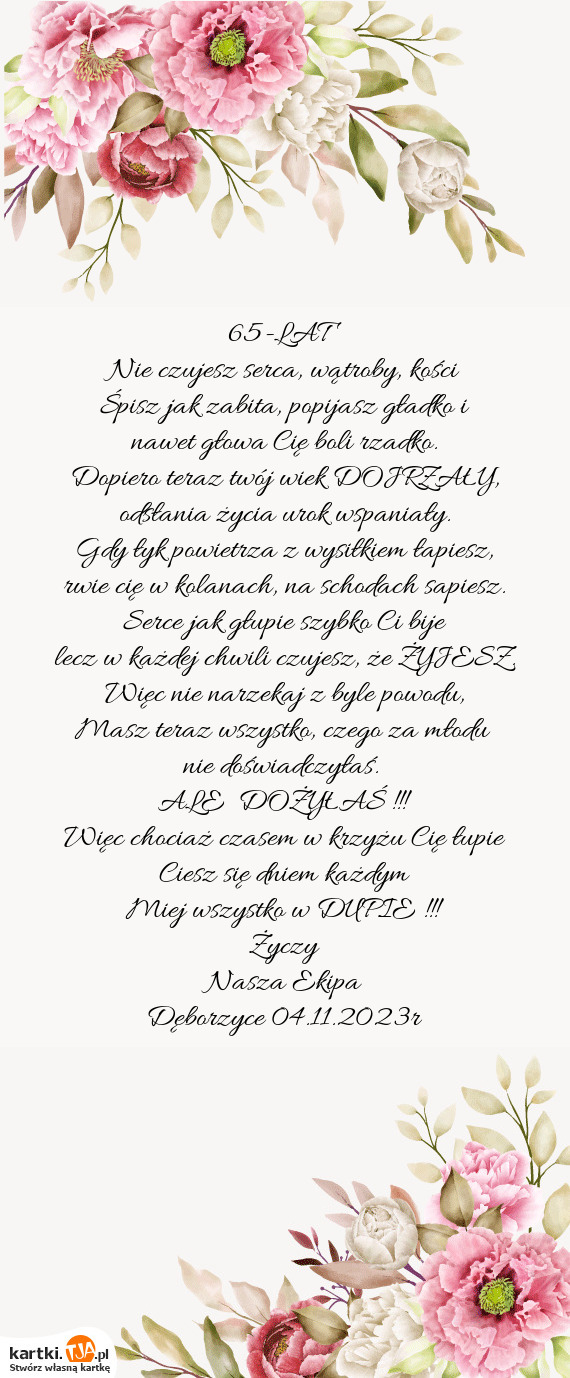 65-LAT
Nie czujesz serca, wątroby, kości
Śpisz jak zabita, popijasz gładko i
nawet głowa Cię boli rzadko.
Dopiero teraz twój wiek DOJRZAŁY,
odsłania życia urok wspaniały.
Gdy łyk powietrza z wysiłkiem łapiesz,
rwie cię w kolanach, na schodach sapiesz.
Serce jak głupie szybko Ci bije
lecz w każdej chwili czujesz, że ŻYJESZ
Więc nie narzekaj z byle powodu,
Masz teraz wszystko, czego za młodu
nie doświadczyłaś.
ALE DOŻYŁAŚ !!!
Więc chociaż czasem w krzyżu Cię łupie
Ciesz się dniem każdym
Miej wszystko w DUPIE !!!
Życzy
Nasza Ekipa
Dęborzyce 04.11.2023r
kartki.TJA.pl
Stwórz własną kartkę